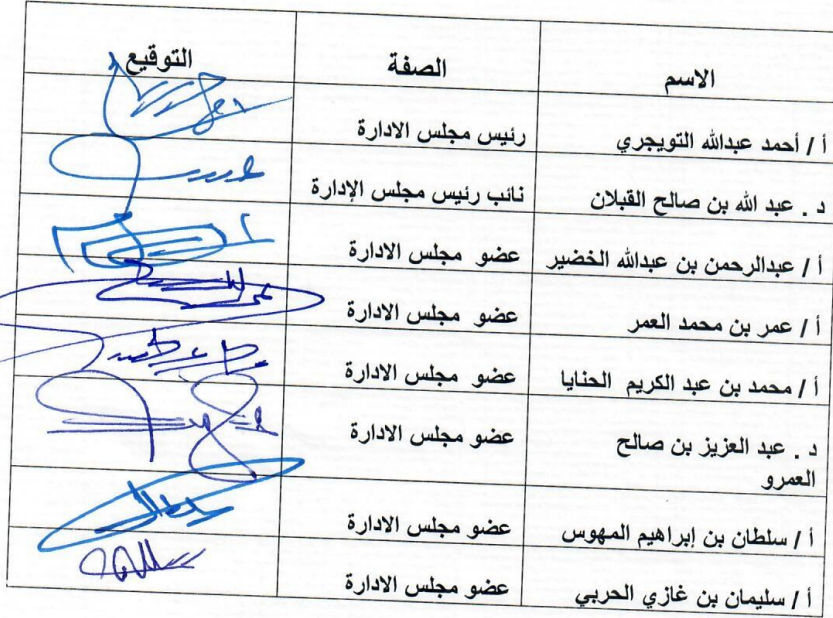 الاسم الصفة التوقيع
أ / أحمد عبدالله التويجري رئيس مجلس الادارة
د . عبد الله بن صالح القبلان نائب رئيس مجلس الإدارة
أ / عبدالرحمن بن عبدالله الخضير عضو مجلس الادارة
أ / عمر بن محمد العمر عضو مجلس الادارة
أ / محمد بن عبد الكريم الحنايا عضو مجلس الادارة
د . عبد العزيز بن صالح عضو مجلس الادارة
العمرو
أ / سلطان بن إبراهيم المهوس عضو مجلس الادارة
أ / سليمان بن غازي الحربي عضو مجلس الادارة